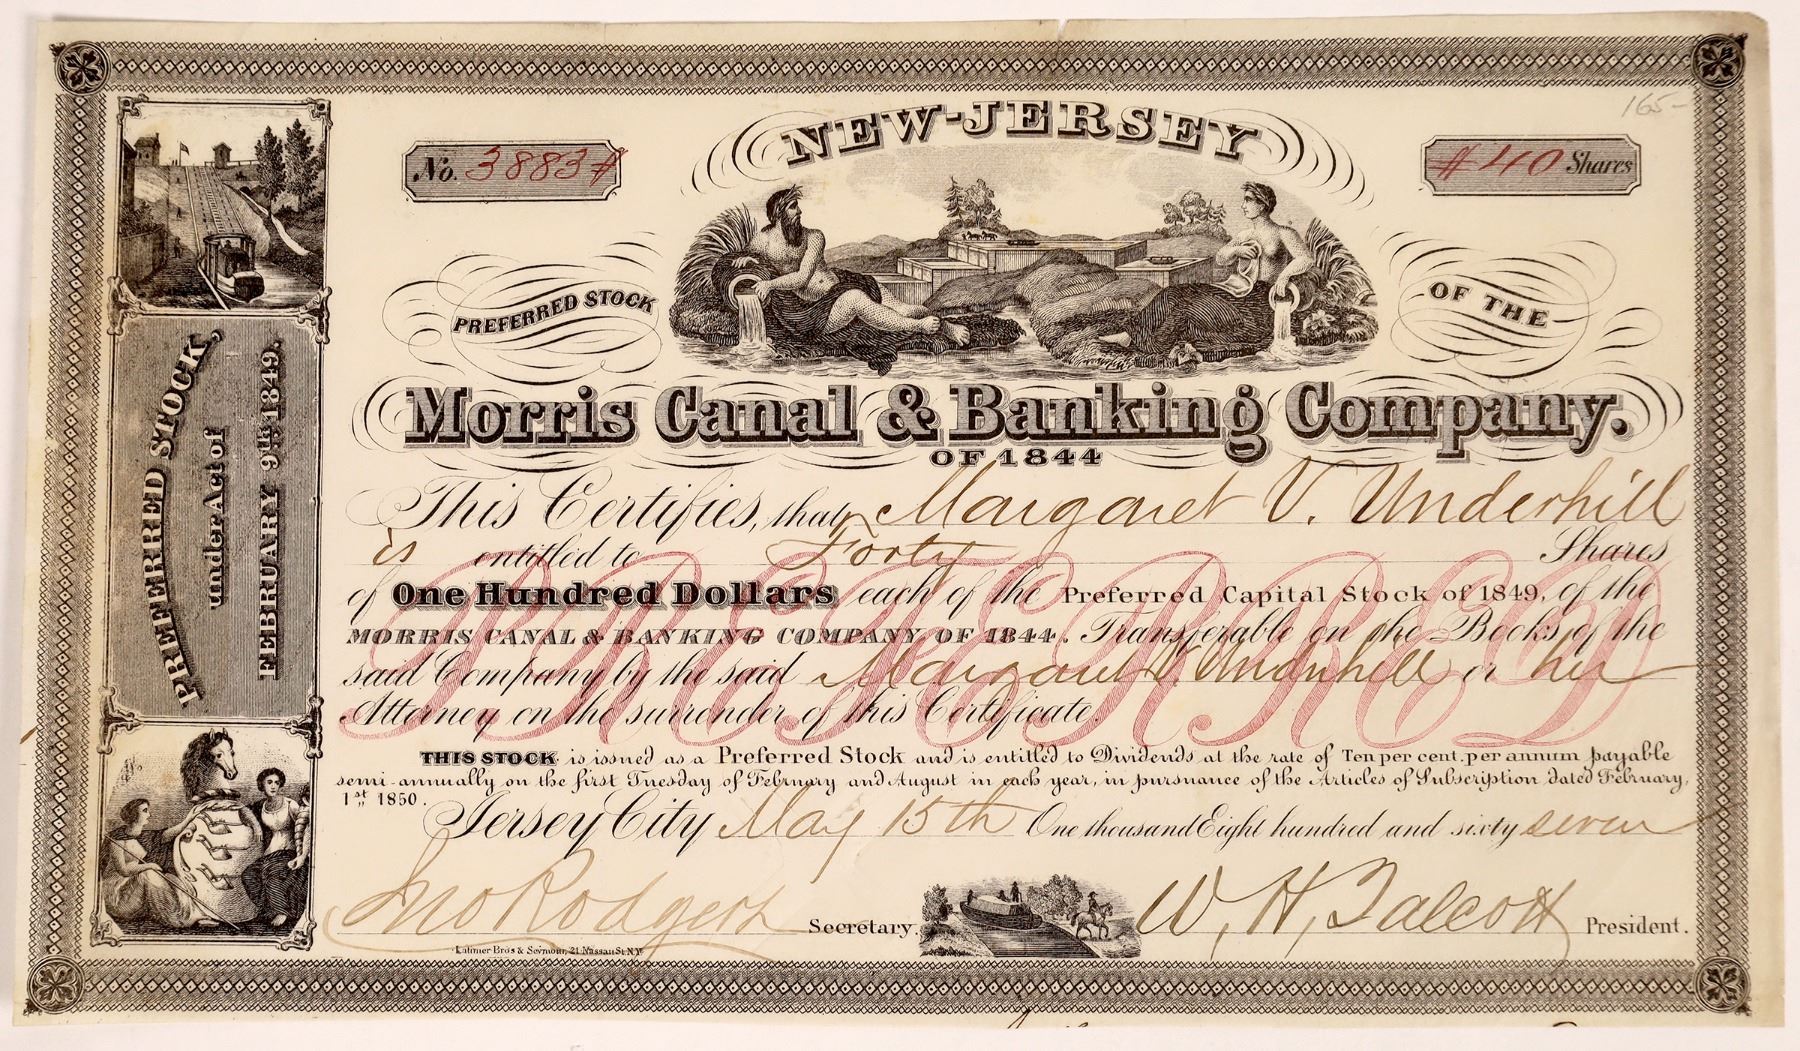 165-
NEW-JERSEY
No. 3883#
#40 Shares
PREFERRED STOCK
OF THE
Morris Canal & Banking Company.
OF 1844
PREFERRED STOCK,
under Act of
FEBRUARY 9th 1849.
This Certifies, that Margaret V. Underhill
is entitled to Forty Shares
of One Hundred Dollars each of the Preferred Capital Stock of 1849, of the
MORRIS CANAL & BANKING COMPANY OF 1844. Transferable on the Books of the
said Company by the said Margaret V. Underhill or her
Attorney on the surrender of this Certificate.
PREFERRED
THIS STOCK is issued as a Preferred Stock and is entitled to Dividends at the rate of Ten per cent. per annum payable
semi-annually on the first Tuesday of February and August in each year, in pursuance of the Articles of Subscription dated February,
1st 1850.
Jersey City May 15th One thousand Eight hundred and sixty seven
Jno Rodgers Secretary.
W. H. Talcott President.
Latimer Bros & Seymour, 21 Nassau St. N.Y.